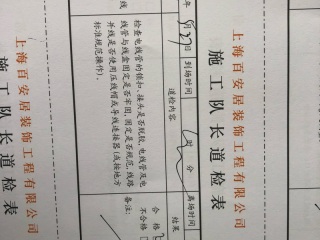 上海百安居装饰工程有限公司
施工队长道检表
年 8月29日 到场时间 时 分 离场时间
道检内容 结果
检查电线管的锁扣、接头是否脱胶,电线管及电
线管与线盒固定是否牢固,固定是否规范,线路
并线是否使用压线帽或导线连接器(或按地方
标准规范操作)。
合格
不合格
备注:
上海百安居装饰工程有限公司
施工队长道检表